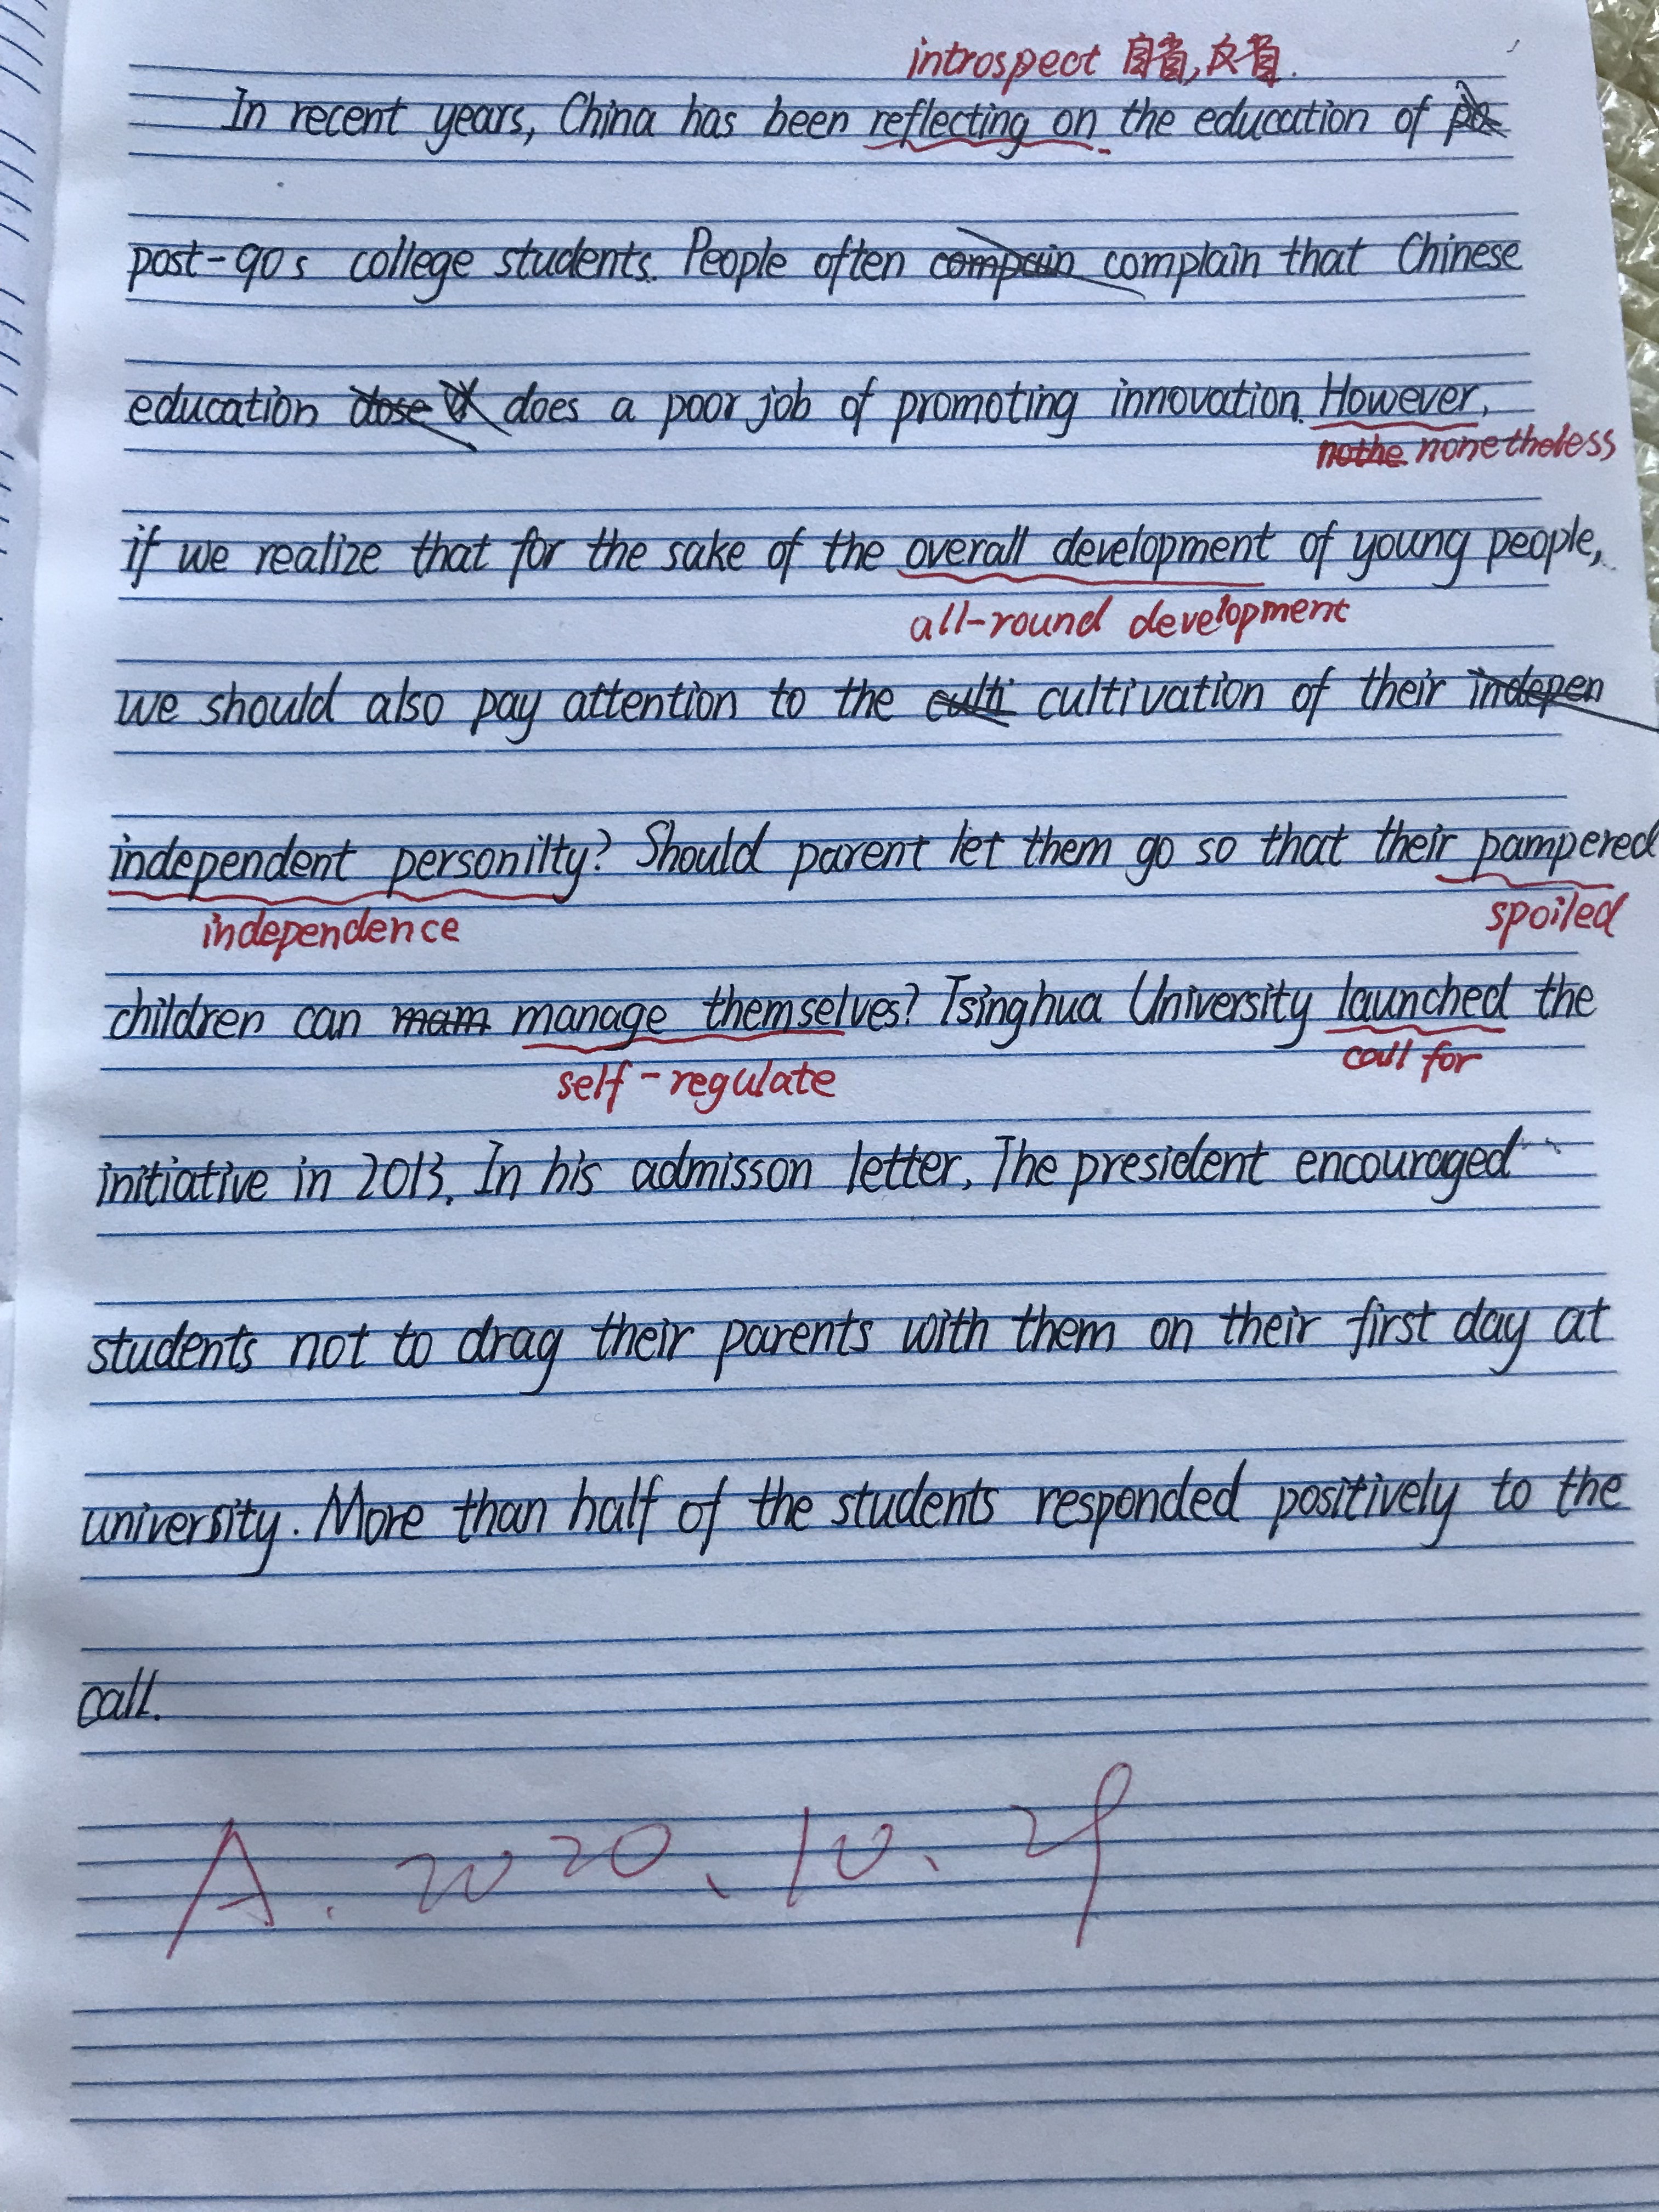 introspect 自省,反省.
In recent years, China has been reflecting on the education of
post-90s college students. People often compain complain that Chinese
education dose does a poor job of promoting innovation. However,
nothe nonetheless
if we realize that for the sake of the overall development of young people,
all-round development
we should also pay attention to the culti cultivation of their indepen
independent personilty? Should parent let them go so that their pampered
independence spoiled
children can mam manage themselves? Tsinghua University launched the
self-regulate call for
initiative in 2013. In his admisson letter, The president encouraged
students not to drag their parents with them on their first day at
university. More than half of the students responded positively to the
call.
A. 2020、10、